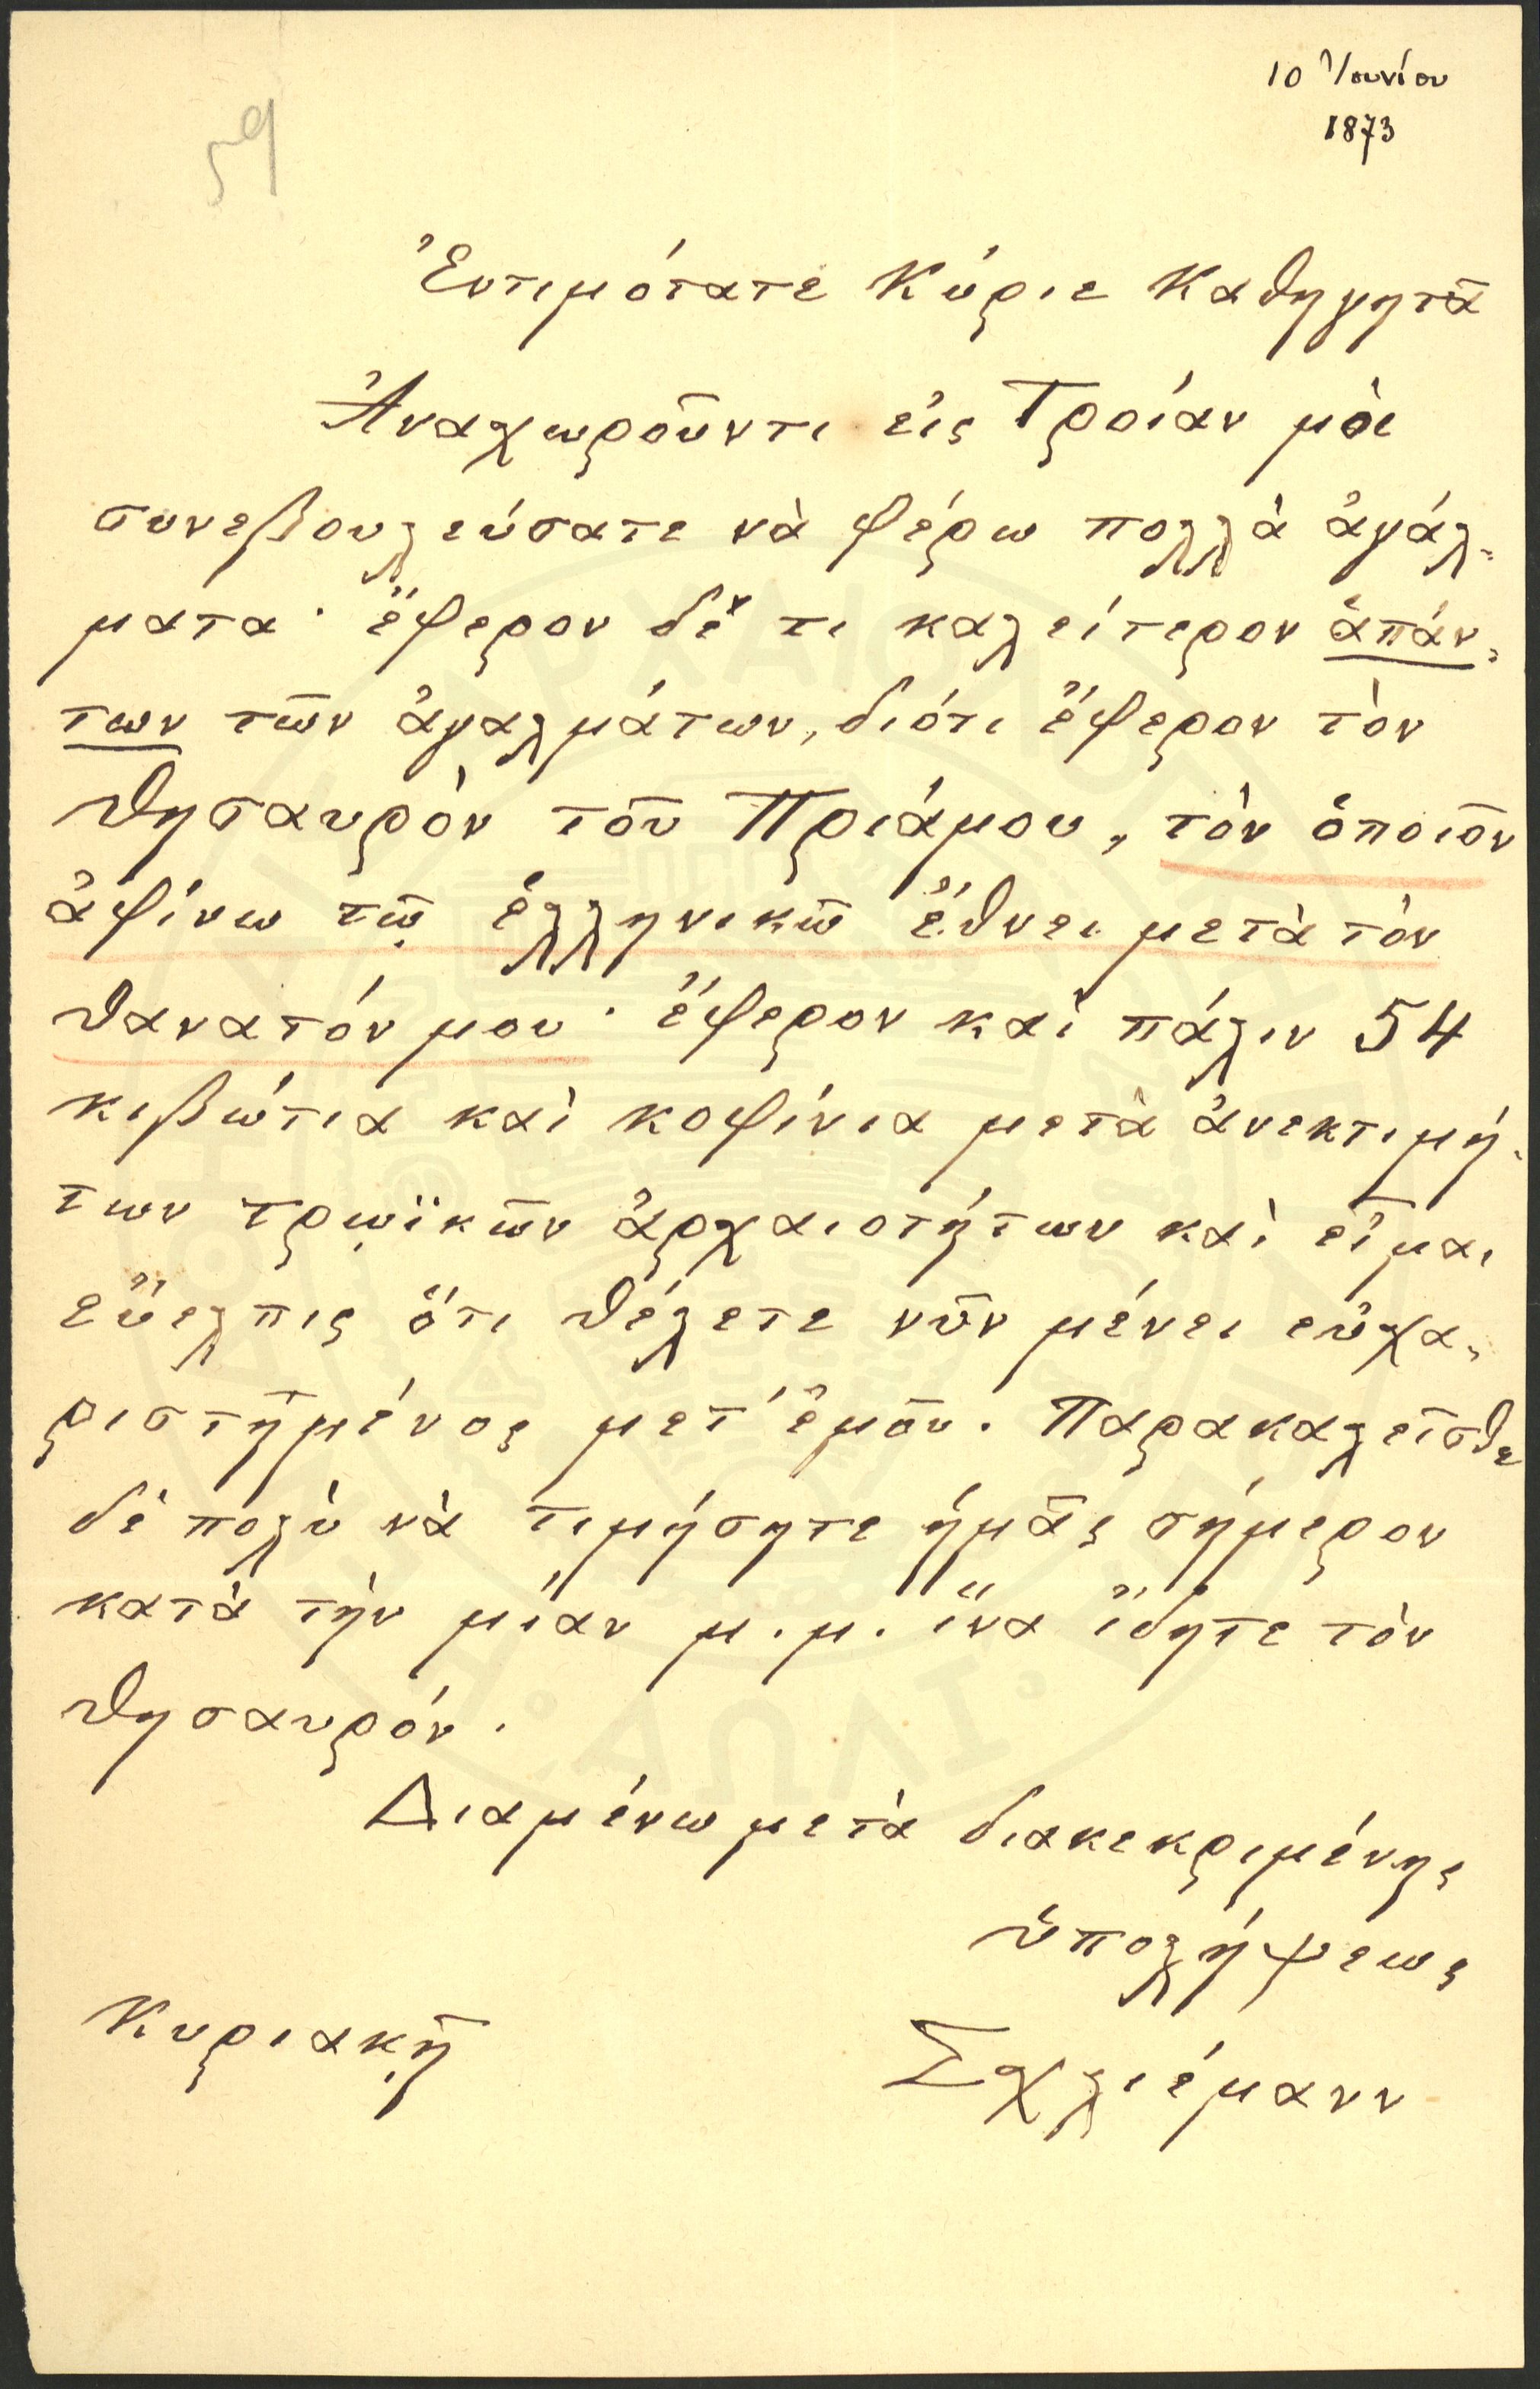 10 Ἰουνίου
1873
59
Ἐντιμότατε Κύριε Καθηγητᾶ
Ἀναχωροῦντι εἰς Τροίαν μὸι
συνεβουλεύσατε νὰ φέρω πολλὰ ἀγάλ-
ματα· ἔφερον δέ τι καλείτερον ἁπάν-
των τῶν ἀγαλμάτων, διότι ἔφερον τὸν
θησαυρὸν τοῦ Πριάμου, τὸν ὁποῖον
ἀφίνω τῷ ἑλληνικῶ ἔθνει μετὰ τὸν
θανατόν μου· ἔφερον καὶ πάλιν 54
κιβώτια καὶ κοφίνια μετὰ ἀνεκτιμή-
των τρῳϊκῶν ἀρχαιοτήτων καὶ εἶμαι
εὔελπις ὅτι θέλετε νῦν μένει εὐχα-
ριστημένος μετ' ἐμοῦ. Παρακαλεῖσθε
δὲ πολὺ νὰ τιμήσητε ἡμᾶς σήμερον
κατὰ τὴν μίαν μ.μ. ἵνα ἴδητε τὸν
θησαυρόν.
Διαμένω μετὰ διακεκριμένης
ὑπολήψεως
Κυριακῇ
Σχλιέμανν